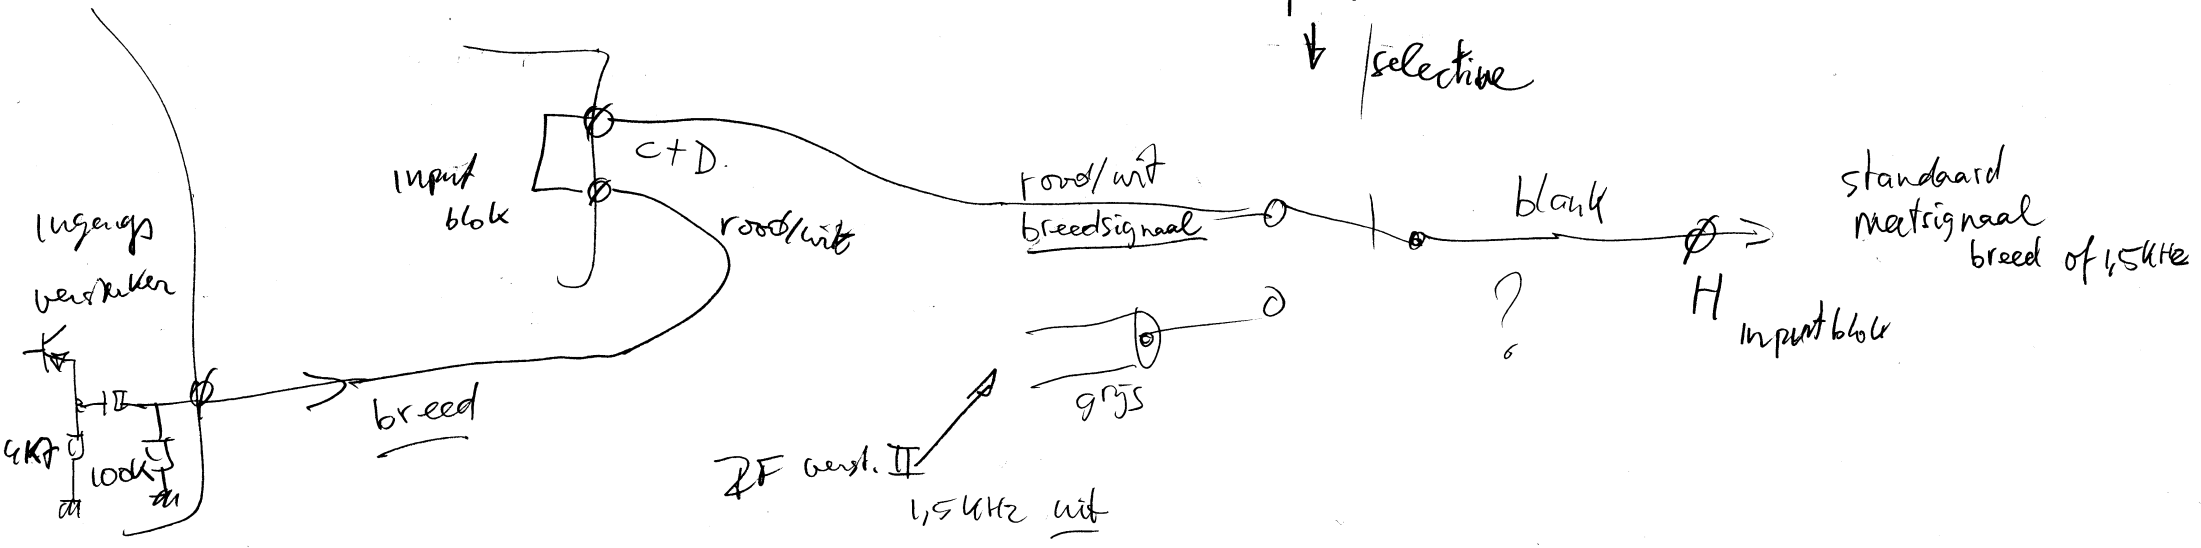 selective
C+D.
input
blok
rood/wit
breedsignaal
blank
standaard
meetsignaal
breed of 1,5KHz
Ingangs
versterker
rood/wit
?
H
inputblok
breed
grijs
4K7
100K
ZF verst. II
1,5KHz wit